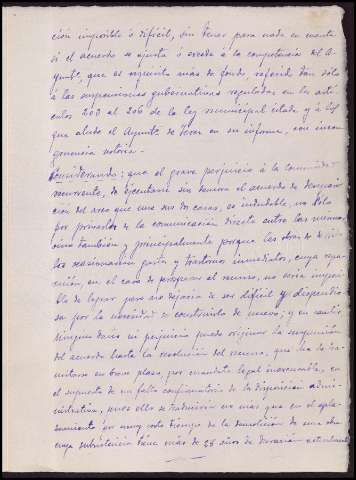 ción imposible ó difícil, sin tener para nada en cuenta
si el acuerdo se ajusta ó excede á la competencia del A-
yuntº, que es asunto más de fondo, referido tan sólo
á las suspensiones gubernativas reguladas en los artí-
culos 200 al 206 de la ley municipal citada y á los
que alude el Ayuntº de Jerez en su informe, con incon
gruencia notoria.
Considerando: que el grave perjuicio á la Comunidad
recurrente, de ejecutarse sin demora el acuerdo de desapari-
ción del arco que une sus dos casas, es indudable, no sólo
por privarlas de la comunicación directa entre las mismas,
sino también y principalmente porque las obras de
les ocasionarían gastos y trastornos inmediatos, cuya repa-
ración, en el caso de prosperar el recurso, no sería imposi-
ble de lograr pero no dejaría de ser difícil y dispendio
sa por la necesidad de construirlo de nuevo; y en cambio
ningun daño ni perjuicio puede originar la suspensión
del acuerdo hasta la resolución del recurso, que ha de tra-
mitarse en breve plazo por mandato legal inexcusable, en
el supuesto de un fallo confirmatorio de la disposición admi-
nistrativa, pues ello se traduciría no más que en el apla-
zamiento por muy corto tiempo de la demolición de una obra
cuya subsistencia data más de 28 años de duración